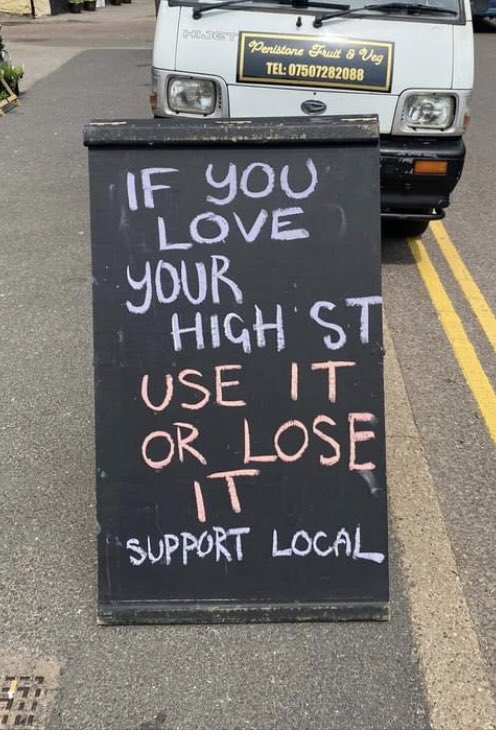 HIJET
Penistone Fruit & Veg
TEL: 07507282088
IF YOU
LOVE
YOUR
HIGH ST
USE IT
OR LOSE
IT
SUPPORT LOCAL